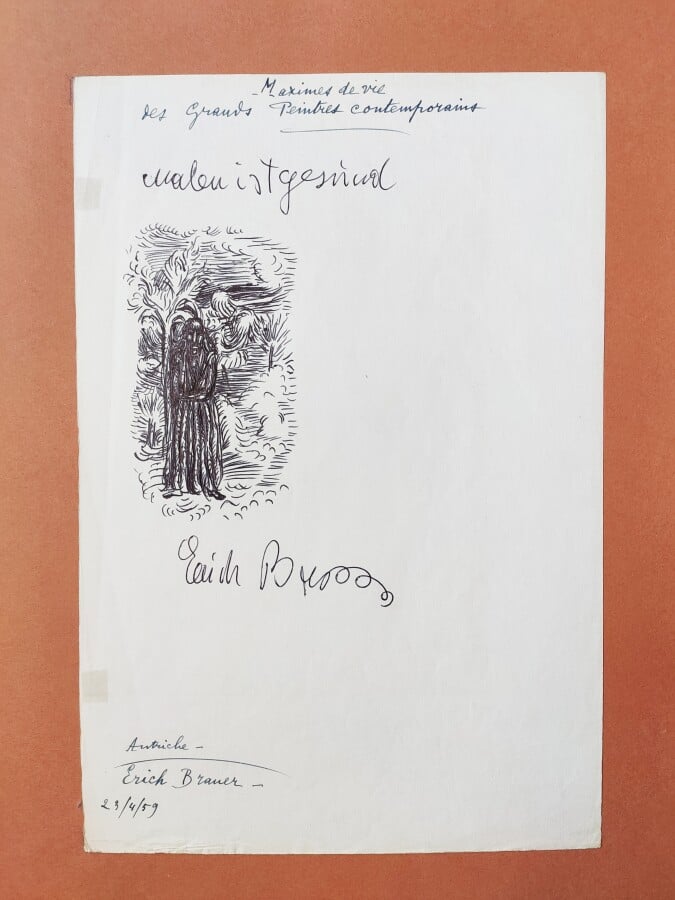 - Maximes de vie
des Grands Peintres contemporains
malen ist gesund
Erich Brauer
Autriche -
Erich Brauer -
23/4/59